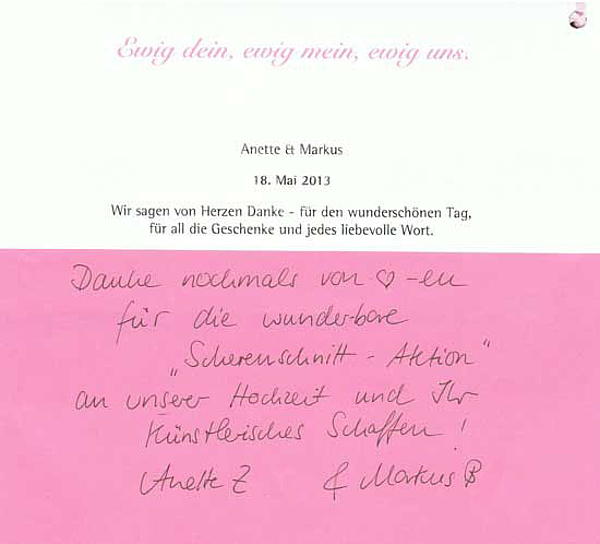 Ewig dein, ewig mein, ewig uns.
Anette & Markus
18. Mai 2013
Wir sagen von Herzen Danke - für den wunderschönen Tag,
für all die Geschenke und jedes liebevolle Wort.
Danke nochmals von ♡-en
für die wunderbare
„Scherenschnitt - Aktion"
an unserer Hochzeit und Ihr
künstlerisches Schaffen!
Anette Z & Markus B